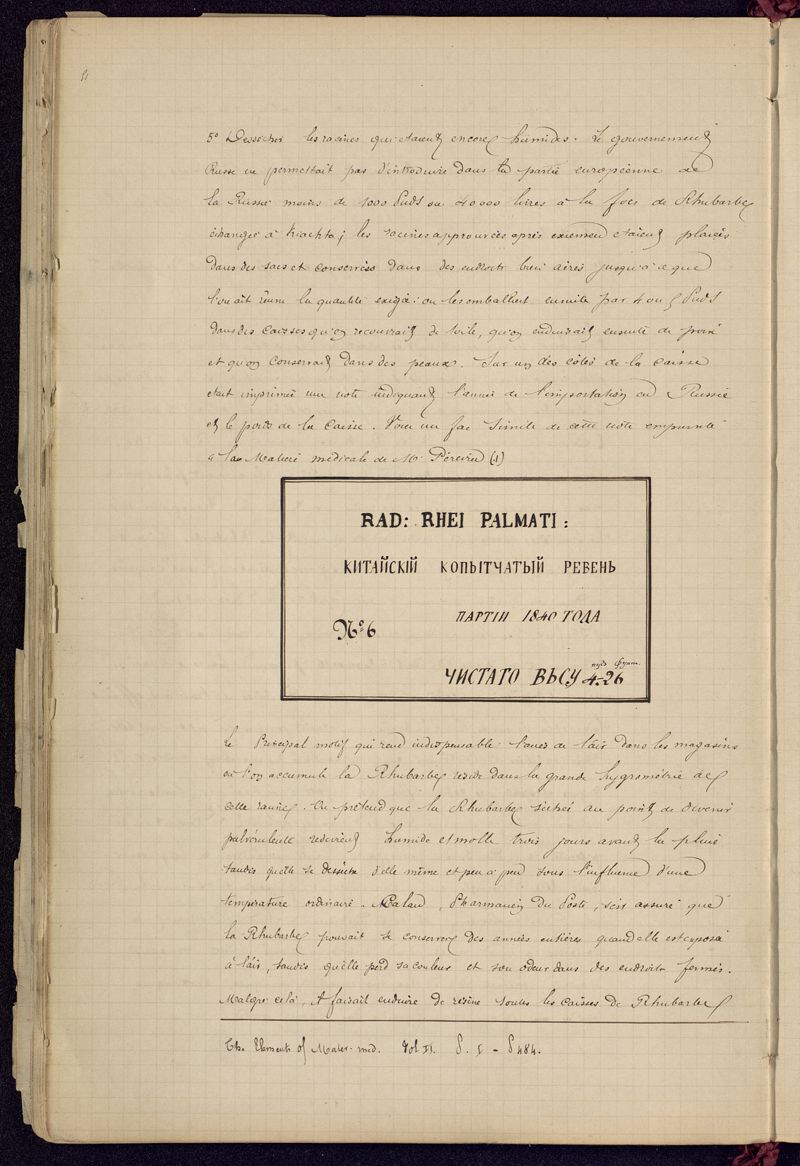 5° Dessècher les racines qui étaient encore humides. Le gouvernement
Russe ne permettait pas d'introduire dans la partie européenne de
la Russie moins de 1000 Puds ou 40000 livres à la fois de Rhubarbe
échangée à Kiachta; les racines approuvées après examen étaient placées
dans des sacs et conservées dans des endroits bien aérés jusqu'à ce que
l'on ait réuni la quantité exigée: on les emballait ensuite par 4 ou 5 Puds
dans des caisses qu'on recouvrait de toile, qu'on enduisait ensuite de poix
et qu'on conservait dans des peaux. Sur un des côtés de la caisse
était imprimée une note indiquant l'année de l'importation en Russie
et le poids de la caisse. Voici un fac simile de cette note emprunté
à la Matière médicale de Mr. Péreira (1)
RAD: RHEI PALMATI:
КИТАЙСКІЙ КОПЫТЧАТЫЙ РЕВЕНЬ
ПАРТІИ 1840 ГОДА
№ 6
пуд фунт.
ЧИСТАГО ВЬСУ 4-26
Le Principal motif qui rend indispensable l'accès de l'air dans les magasins
où l'on accumule la Rhubarbe réside dans la grande hygrométrie de
cette racine. On prétend que la Rhubarbe séchée au point de devenir
pulvérulente redevient humide et molle trois jours avant la pluie
tandis qu'elle se dessèche d'elle même et peu à peu sous l'influence d'une
température ordinaire. Calau, Pharmacien du Poste, s'est assuré que
la Rhubarbe pouvait se conserver des années entières quand elle est exposée
à l'air, tandis qu'elle perd sa couleur et son odeur dans des endroits fermés.
Malgré cela, il faisait enduire de résine toutes les caisses de Rhubarbe
Th. Elements of Mater. med. Vol II. P. I - P 484.